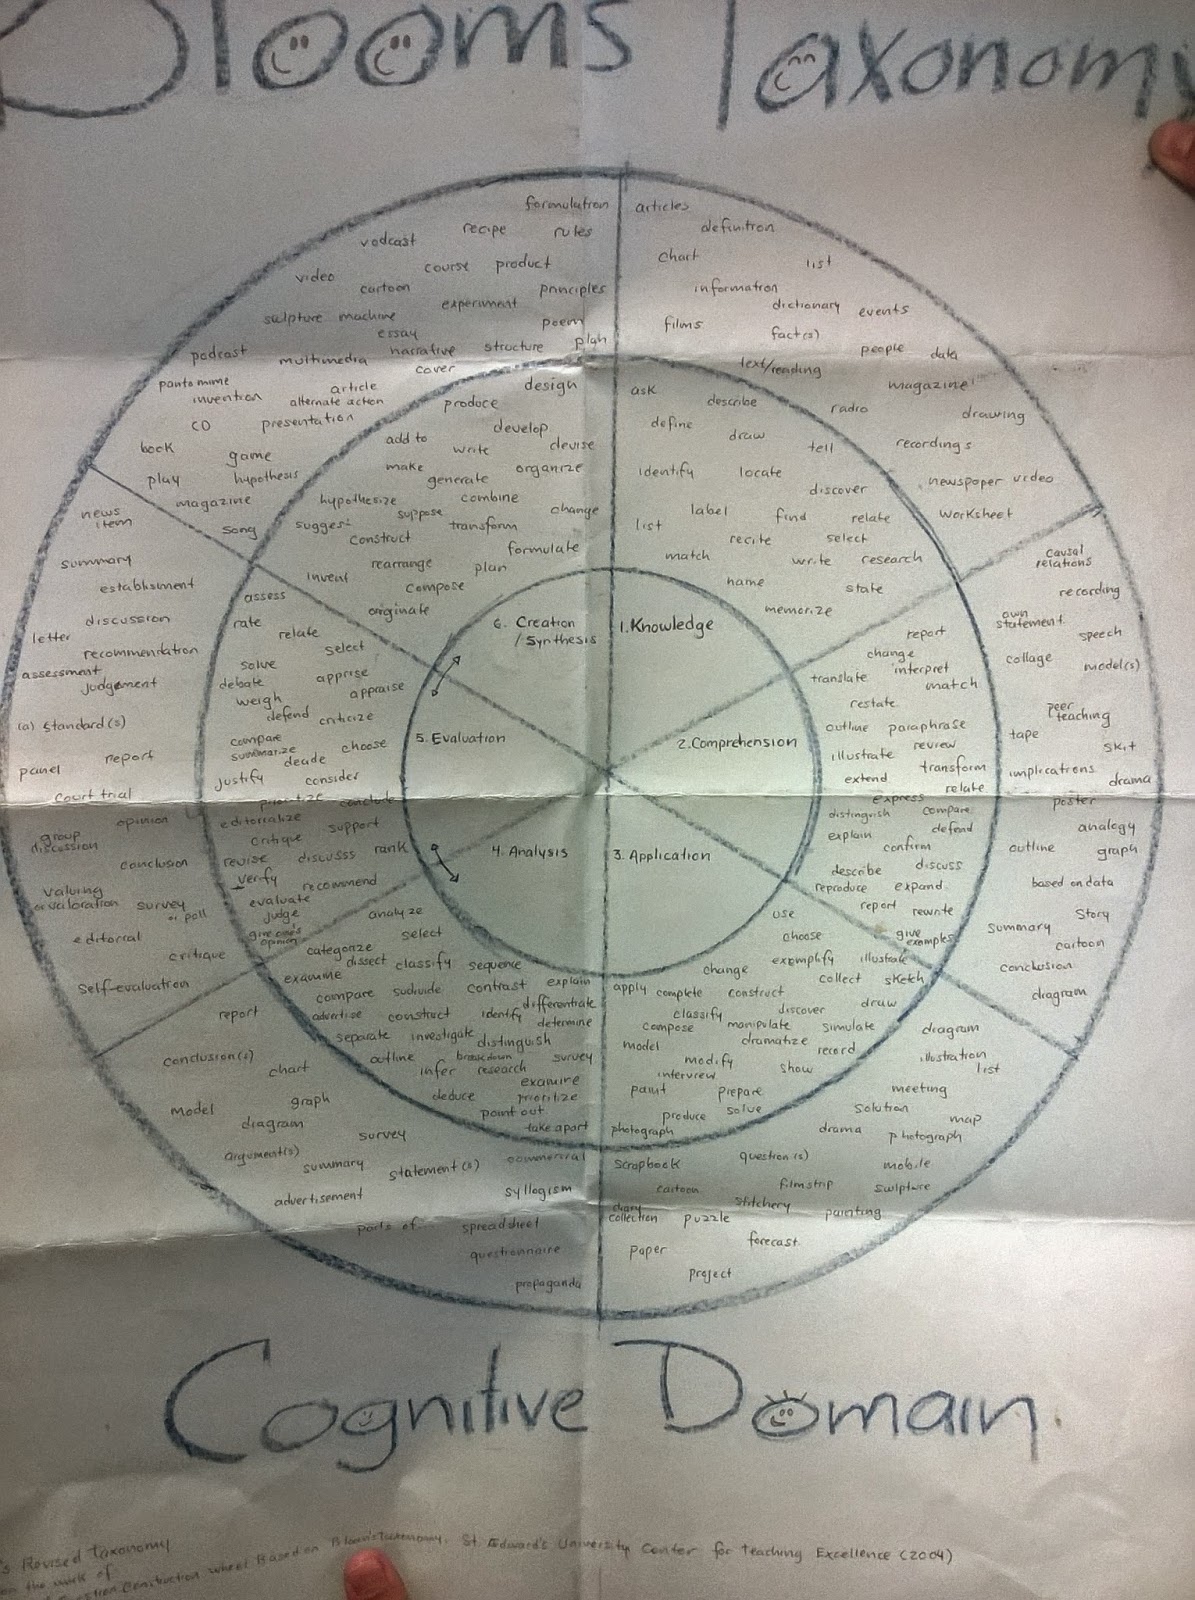 Blooms Taxonomy
formulation
recipe rules
vodcast
course product
video
cartoon principles
experiment
sculpture machine poem
essay
podcast multimedia narrative structure plan
cover
pantomime article
invention alternate action
CD presentation
book game
play hypothesis
magazine
song
articles
definition
chart list
information
dictionary events
films fact(s)
people data
text/reading
magazine
radio drawing
recordings
newspaper video
worksheet
design
produce
develop
add to write devise
make organize
generate
hypothesize combine
suppose change
suggest transform
construct
formulate
rearrange plan
invent compose
originate
ask
describe
define
draw tell
identify locate
discover
label find relate
list
recite select
match write research
name state
memorize
6. Creation
/Synthesis
1. Knowledge
5. Evaluation
2. Comprehension
4. Analysis
3. Application
news
item
summary
establishment
discussion
letter
recommendation
assessment
judgement
(a) Standard(s)
report
panel
court trial
opinion
group
discussion
conclusion
valuing
survey
or poll
editorial
critique
self-evaluation
assess
rate
relate
select
solve
debate apprise
weigh appraise
defend criticize
compare
summarize choose
decide
justify consider
prioritize conclude
editorialize
critique support
revise discusss rank
verify recommend
evaluate
judge
give one's
opinion
report
change
translate interpret
match
restate
outline paraphrase
illustrate review
extend transform
relate
express
distinguish compare
explain defend
confirm
describe discuss
reproduce expand
report rewrite
give
examples
causal
relations
recording
own
statement
speech
collage model(s)
peer
teaching
tape
skit
implications drama
poster
analogy
outline graph
based on data
story
summary
cartoon
conclusion
diagram
analyze
select
categorize
dissect classify sequence
examine explain
compare subdivide contrast
differentiate
advertise construct identify
determine
separate investigate
distinguish
outline breakdown survey
infer research
examine
deduce prioritize
point out
take apart
use
choose
exemplify illustrate
change collect sketch
apply complete construct
classify discover draw
compose manipulate simulate
model dramatize record
modify
interview show
paint prepare
produce solve
photograph
report
conclusion(s)
chart
model graph
diagram
survey
argument(s)
summary statement(s) commercial
advertisement syllogism
parts of spreadsheet
questionnaire
propaganda
diagram
illustration
list
meeting
solution
map
drama photograph
scrapbook question(s) mobile
cartoon filmstrip sculpture
diary stitchery
collection puzzle painting
paper forecast
project
Cognitive Domain
's Revised Taxonomy
on the work of
Construction wheel Based on Bloom's Taxonomy. St. Edward's University Center for Teaching Excellence (2004)